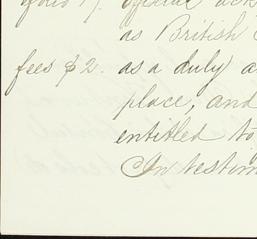 official ack
as British
fees $2. as a duly a
place, and
entitled to
In testim